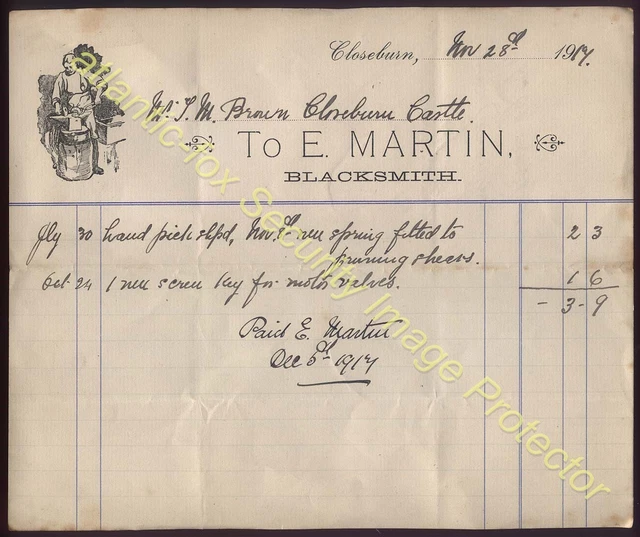 Closeburn, Nov 28th 1917.
Mr. T. M. Brown Closeburn Castle.
To E. MARTIN,
BLACKSMITH.
July 30 hand pick shpd, Nov. 8th new spring fitted to pruning shears. 2 3
Oct 24 1 new screw key for motor valves. 1 6
- 3 - 9
Paid E. Martin
Dec 5th 1917
atlantic-fox Security Image Protector